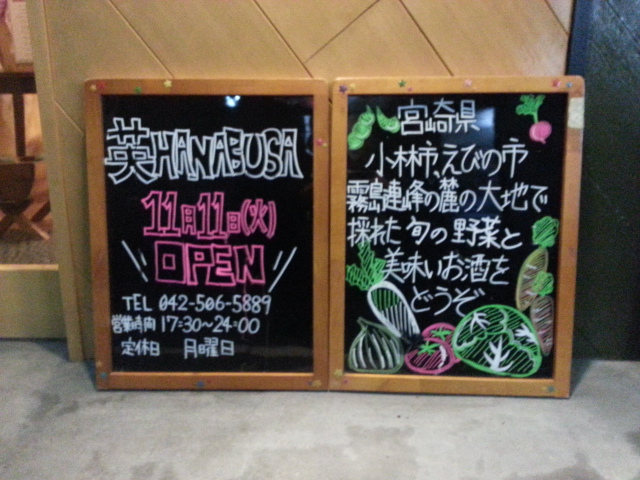 英HANABUSA
11月11日(火)
OPEN
TEL 042-506-5889
営業時間 17:30〜24:00
定休日 月曜日
宮崎県
小林市、えびの市
霧島連峰の麓の大地で
採れた旬の野菜と
美味いお酒を
どうぞ